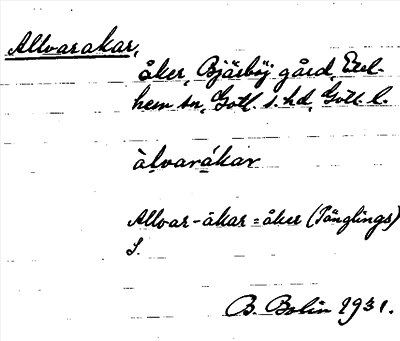 Allvarakar,
åker, Bjärby gård, Etel-
hem sn, Gotl. s. hd, Gotl. l.
àlvarákar
Allvar-åkar = åker (Tänglings)
S.
B. Bolin 1931.